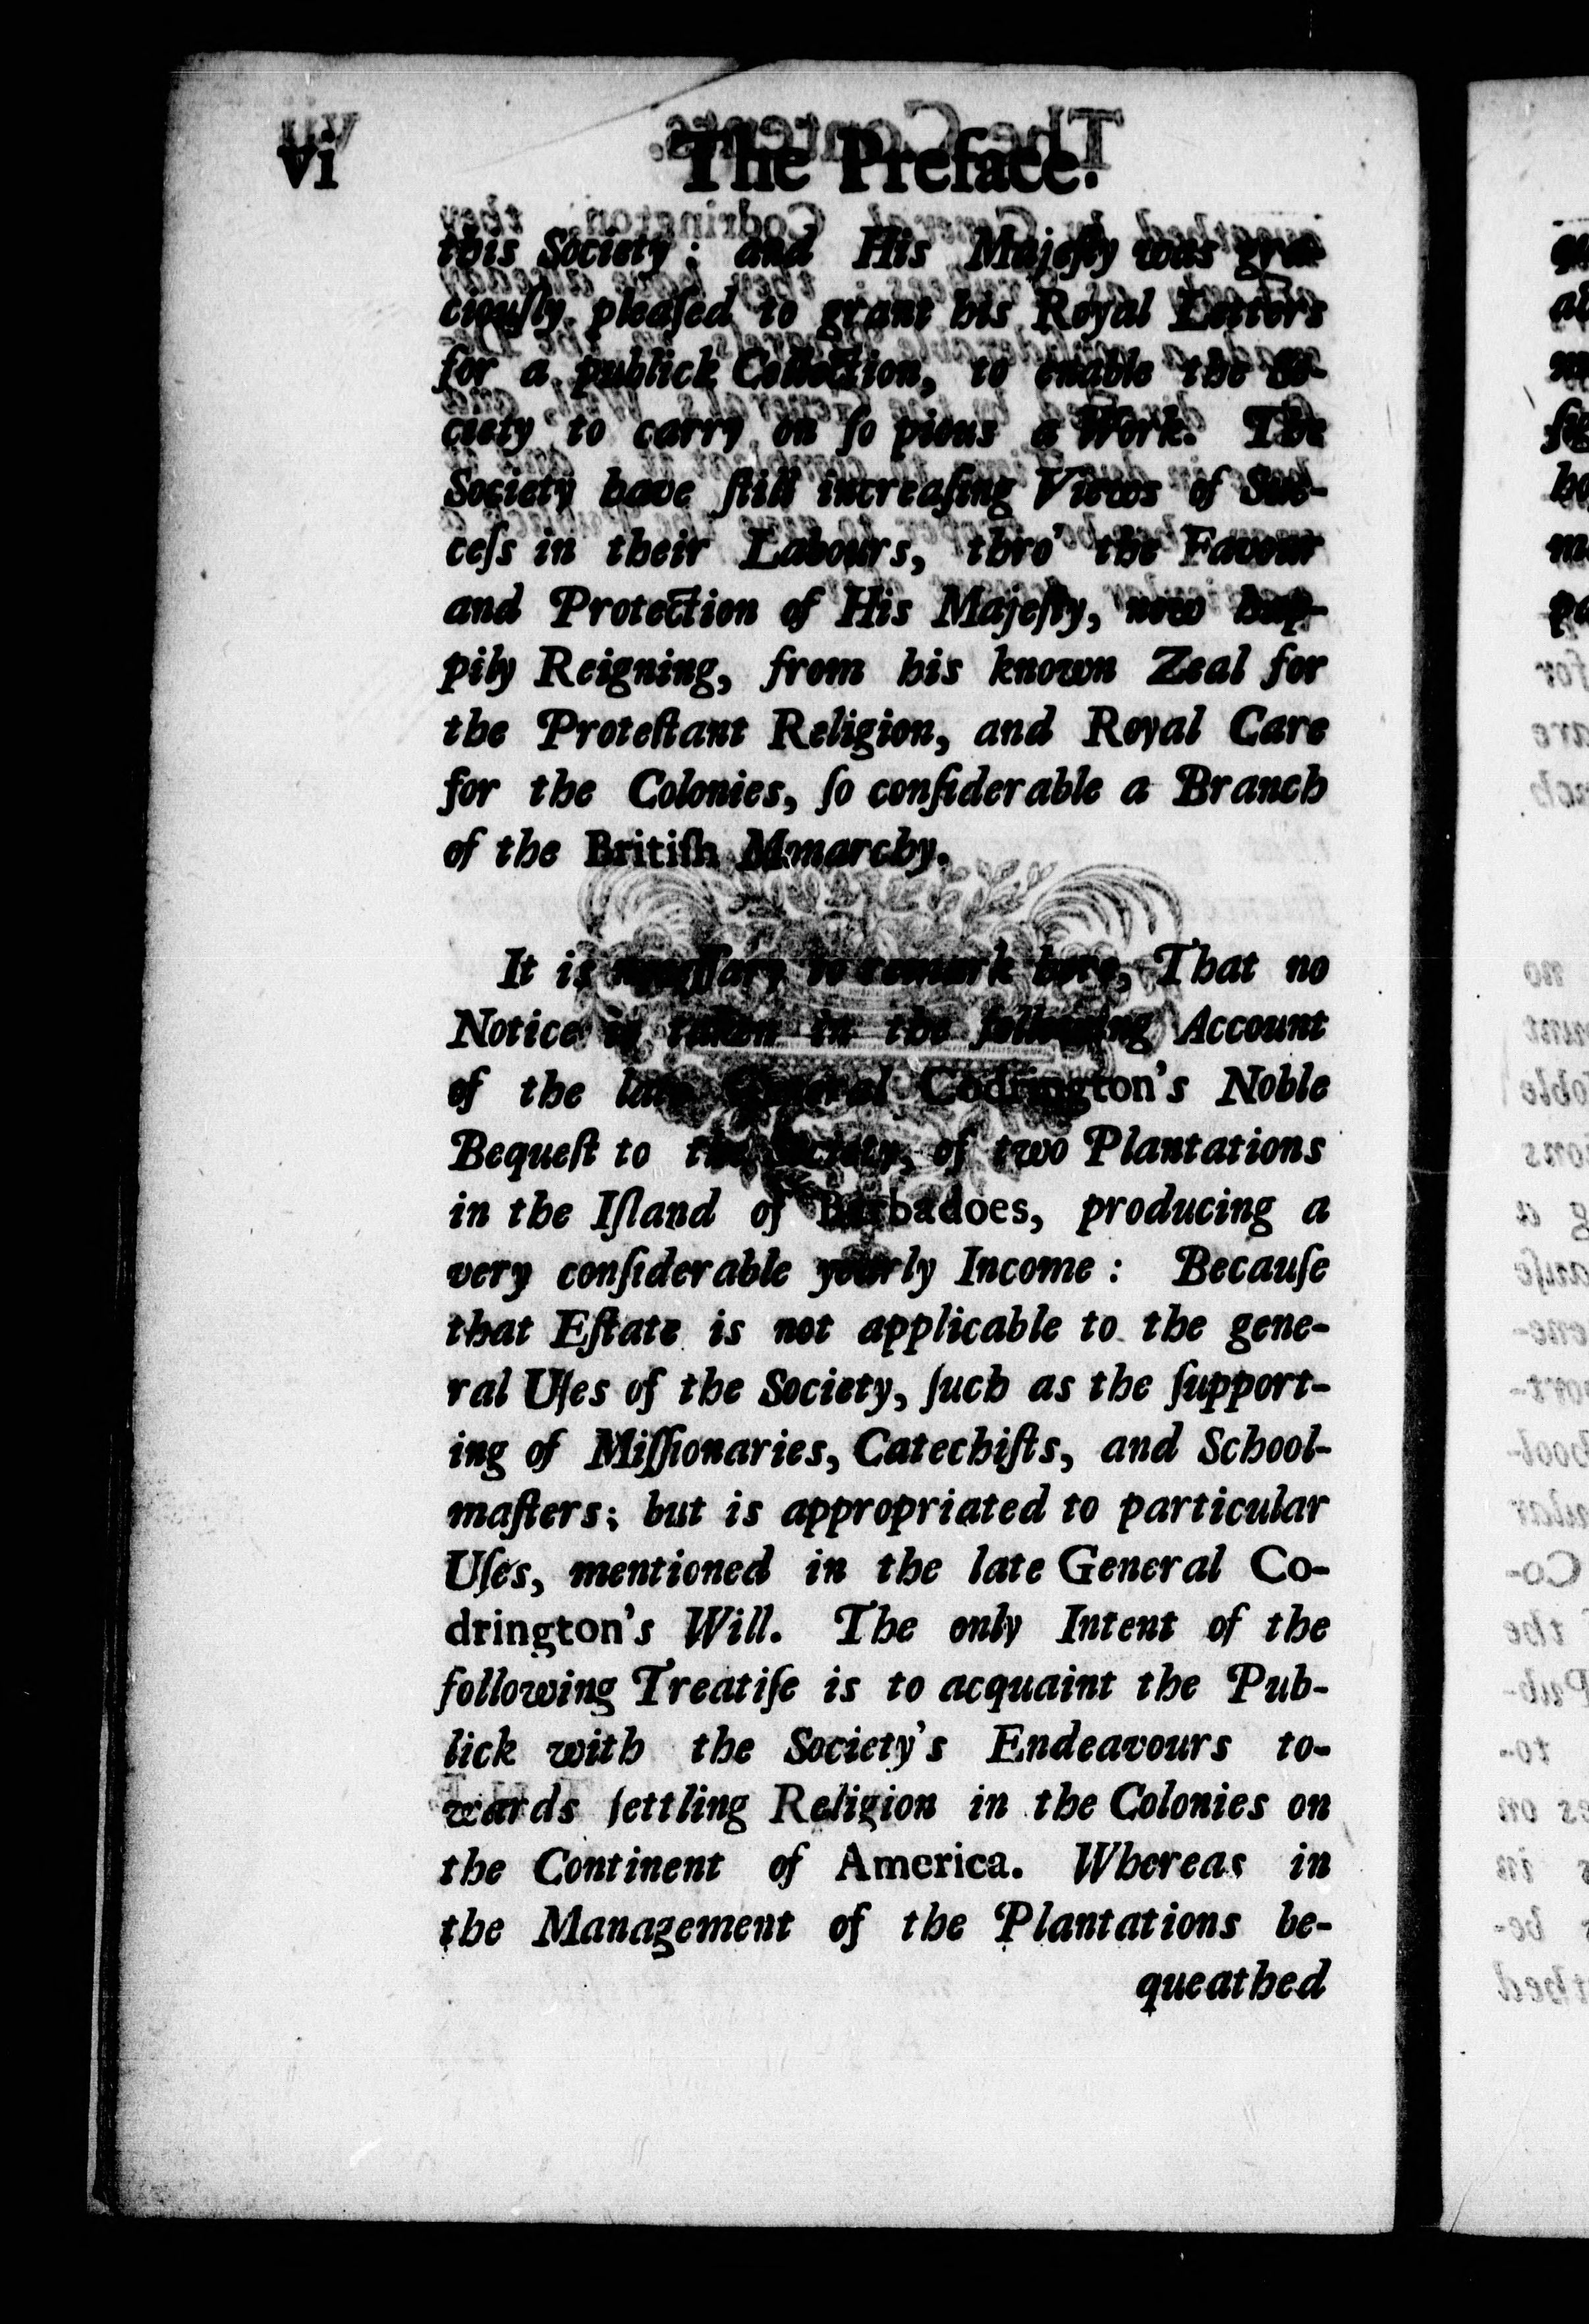 vi The Preface.
this Society: and His Majeſty was gra-
ciouſly pleaſed to grant his Royal Letters
for a publick Collection, to enable the So-
ciety to carry on ſo pious a Work. The
Society have ſtill increaſing Views of Suc-
ceſs in their Labours, thro' the Favour
and Protection of His Majeſty, now hap-
pily Reigning, from his known Zeal for
the Proteſtant Religion, and Royal Care
for the Colonies, ſo conſiderable a Branch
of the Britiſh Monarchy.
It is neceſſary to remark here, That no
Notice is taken in the following Account
of the late General Codrington's Noble
Bequeſt to the Society, of two Plantations
in the Iſland of Barbadoes, producing a
very conſiderable yearly Income: Becauſe
that Eſtate is not applicable to the gene-
ral Uſes of the Society, ſuch as the ſupport-
ing of Miſſionaries, Catechiſts, and School-
maſters; but is appropriated to particular
Uſes, mentioned in the late General Co-
drington's Will. The only Intent of the
following Treatiſe is to acquaint the Pub-
lick with the Society's Endeavours to-
wards ſettling Religion in the Colonies on
the Continent of America. Whereas in
the Management of the Plantations be-
queathed